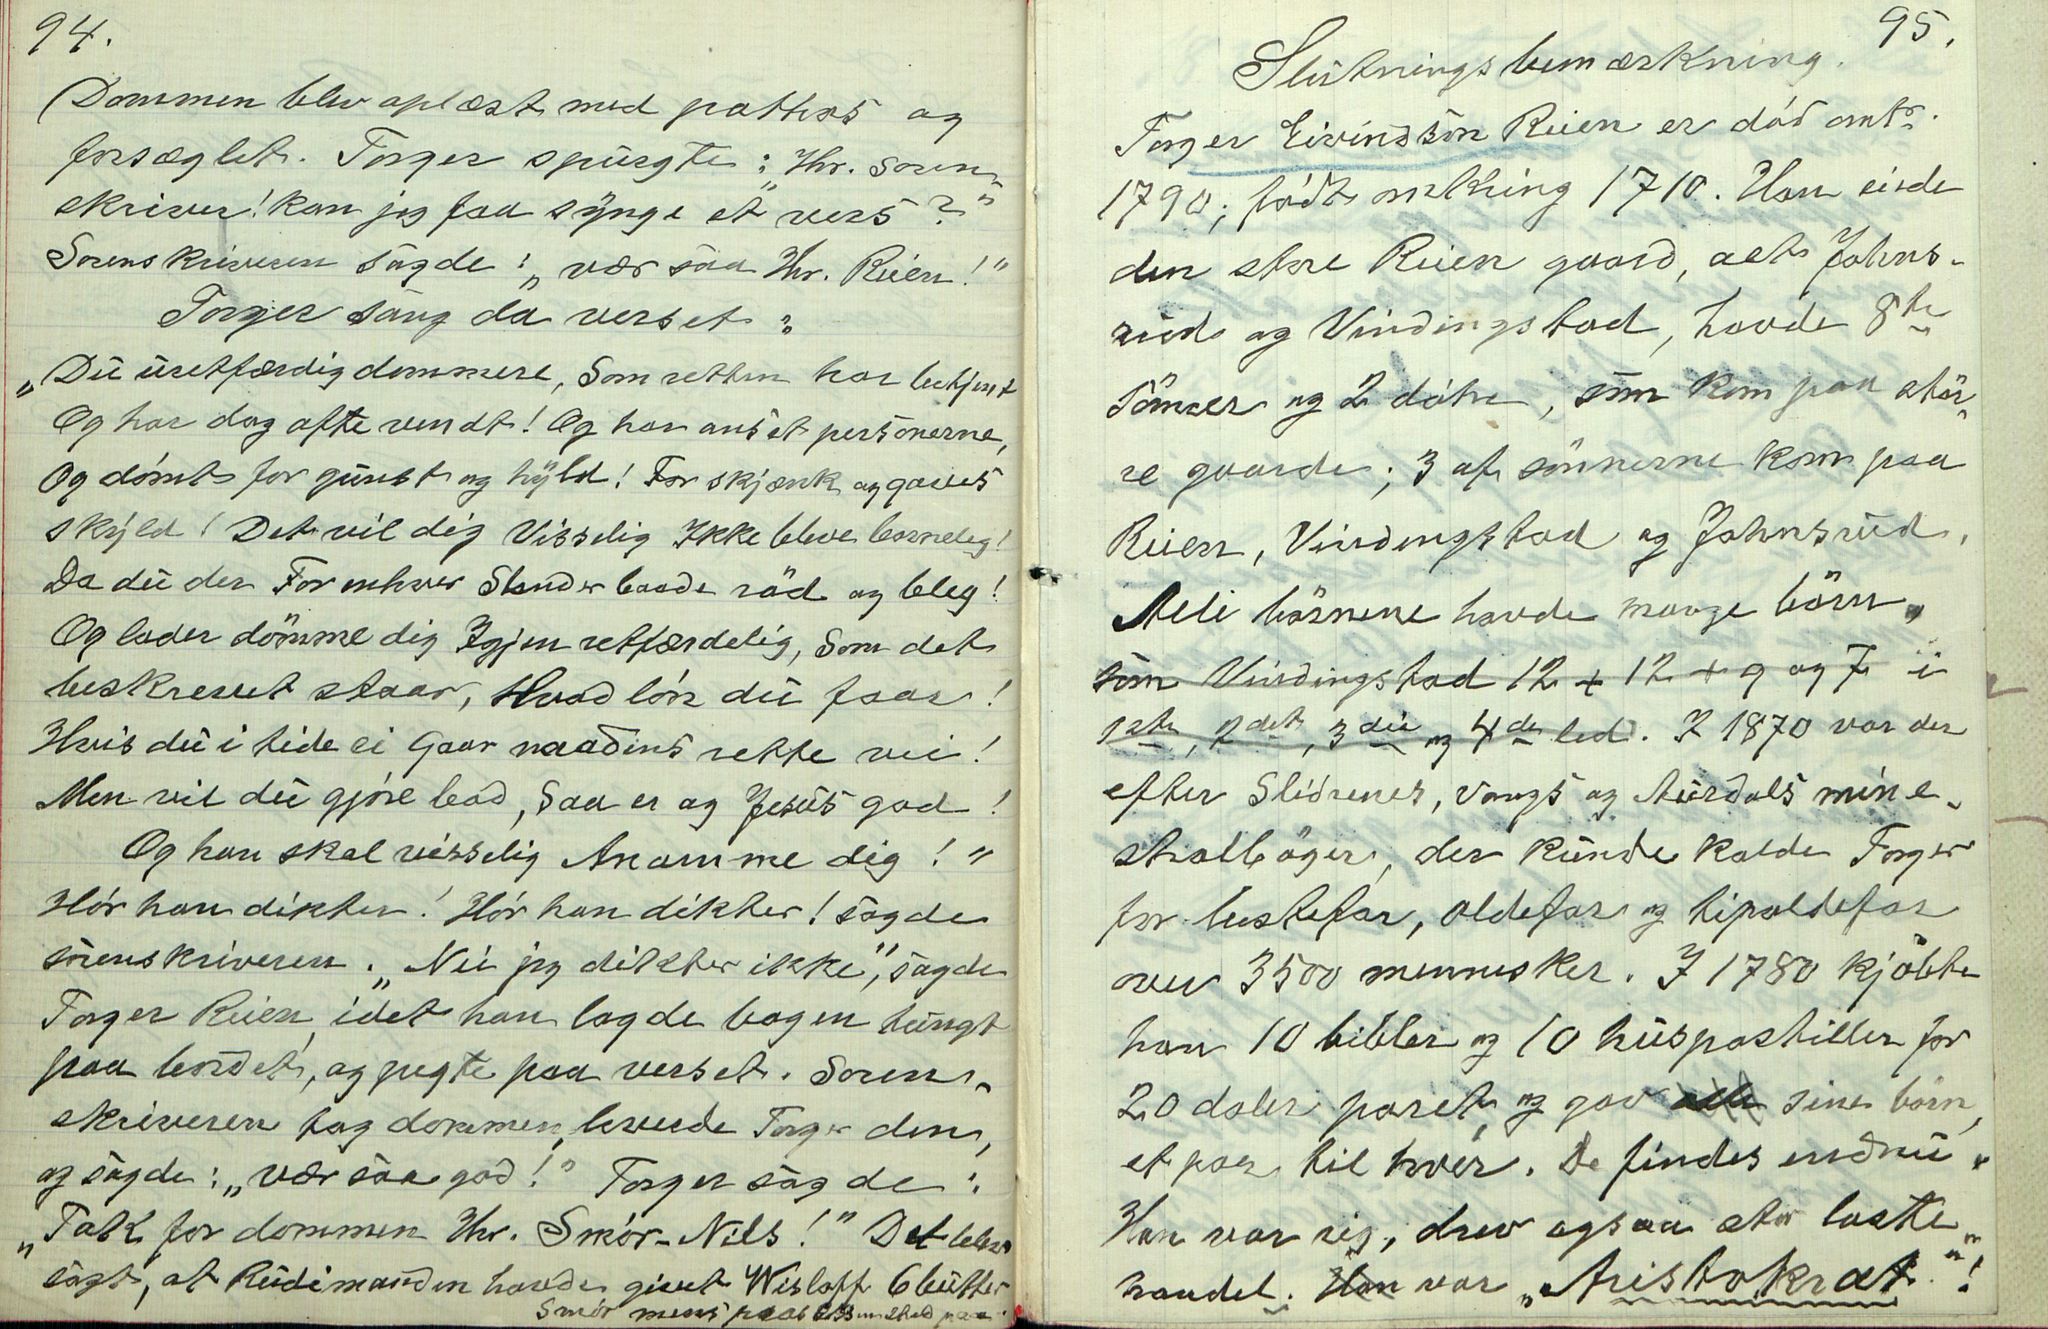 94.
Dommen blev oplæst med pathos og
forseglet. Torger spurgte: "Hr. Soren-
skriver! kan jeg faa synge et vers?"
Sorenskriveren sagde: „vær saa Hr. Reien!"
Torger sang da verset:
„Du uretfærdig dommere, Som retten har betjent
Og har dog ofte vendt! Og har anset personerne,
Og dömt for gunst og hyld! For skjænk og gaves
skyld! Det vil dig Visselig Ikke bleve
Da du der For enhver Stander baade röd og bleg!
Og lader dömme dig Igjen retfærdelig, Som det
beskrevet staar, Hvad lön du faar!
Hvis du i tide ei Gaar naadens rette vei!
Men vil du gjöre bod, Saa er og Jesus god!
Og han skal visselig Anamme dig!"
Hör han dikter! Hör han dikter! sagde
sorenskriveren. „Nei jeg dikter ikke", sagde
Torger Reien, idet han lagde bogen tungt
paa bordet, og pegte paa verset. Soren-
skriveren tog dommen, leverede Torger den,
og sagde: „vær saa god!" Torger sagde:
„Takk for dommen Hr. Smör-Nils!" Det blev
sagt, at Rudimanden havde givet Wisloff 6 bütter
Smör mens
95.
Slutningsbemærkning.
Torger Eivindsön Reien er död omtr.
1790; födt omkring 1710. Han eiede
den store Reien gaard, alt Johns-
rud og Vindingstad, havde 8te
sönner og 2 dötre, som kom paa stör-
re gaarde; 3 af sönnerne kom paa
Reien, Vindingstad og Johnsrud.
Alle börnene havde mange börn,
som Vindingstad 12 + 12 + 9 og 7 i
1ste, 2det, 3die og 4de led. I 1870 var der
efter Slidrenes, Vangs og Aurdals mine-
stralböger, der kunde kalde Torger
for bestefar, oldefar og tipoldefar
over 3500 mennesker. I 1780 kjöbte
han 10 bibler og 10 huspostiller for
20 daler paret, og gav alle sine börn
et par til hver. De findes endnu.
Han var rig, drev ogsaa stor laste-
handel. Han var „Aristokrat"!